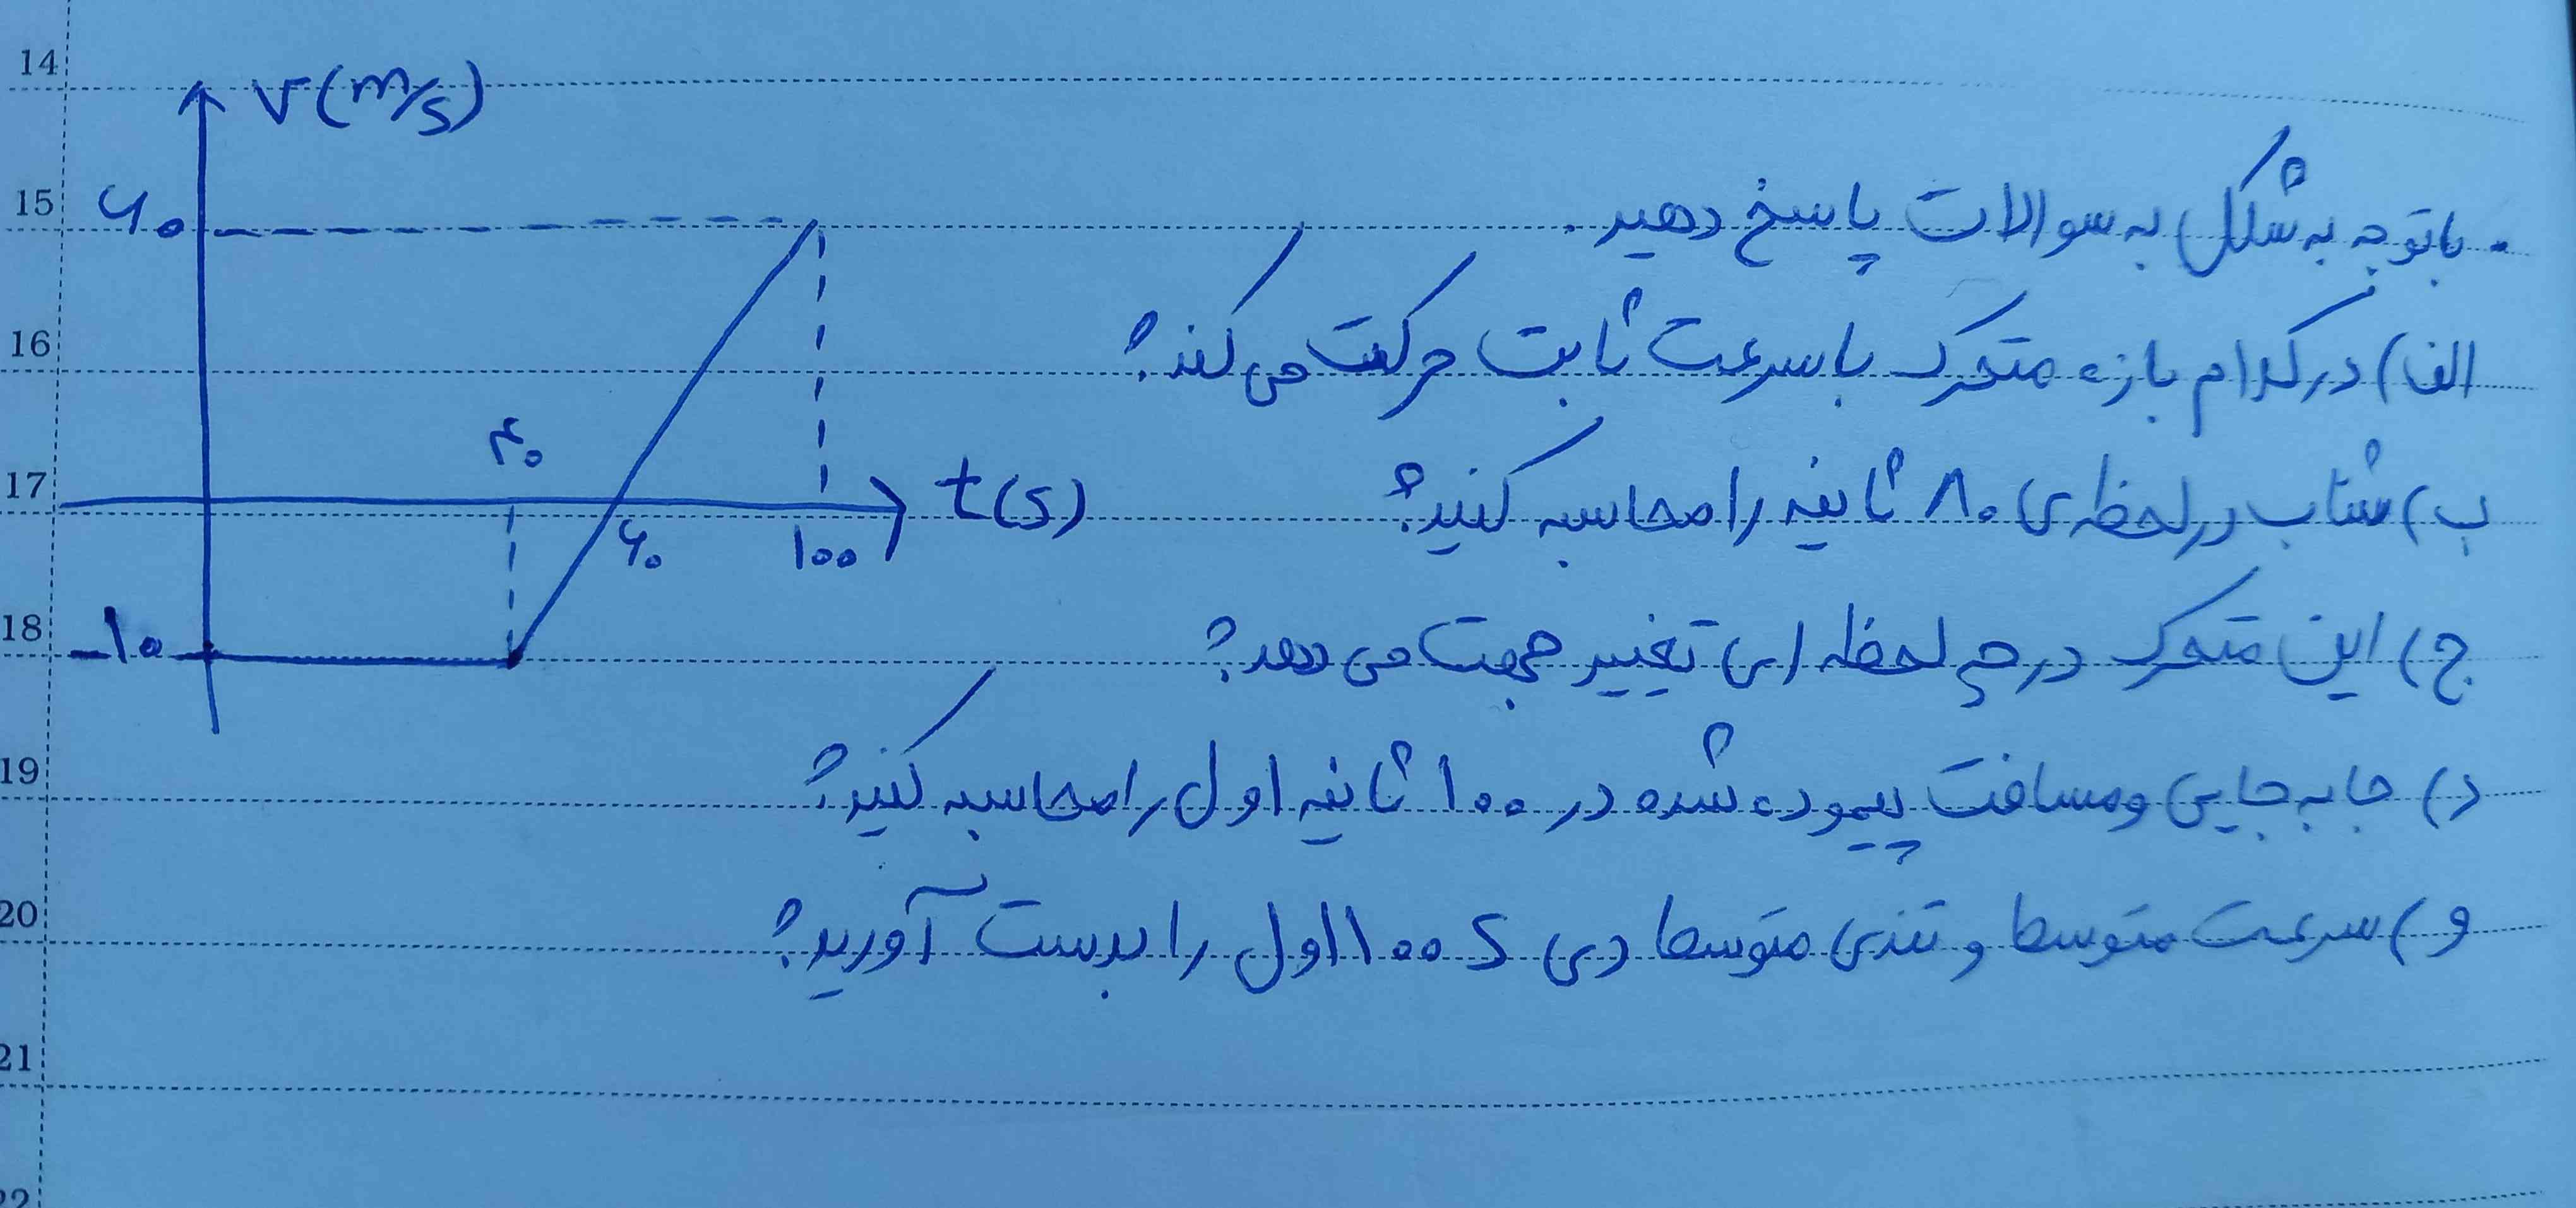 14
v(m/s)
15
۶۰
۰ با توجه به شکل به سوالات پاسخ دهید.
16
الف) در کدام بازه متحرک با سرعت ثابت حرکت می کند؟
۴۰
17
t(s)
۶۰
۱۰۰
ب) شتاب در لحظه ی ۸۰ ثانیه را محاسبه کنید؟
18
-۱۰
ج) این متحرک در چه لحظه ای تغییر جهت می دهد؟
19
د) جا به جایی و مسافت پیموده شده در ۱۰۰ ثانیه اول را محاسبه کنید؟
20
و) سرعت متوسط و تندی متوسط دی ۱۰۰ s اول را بدست آورید؟
21
22